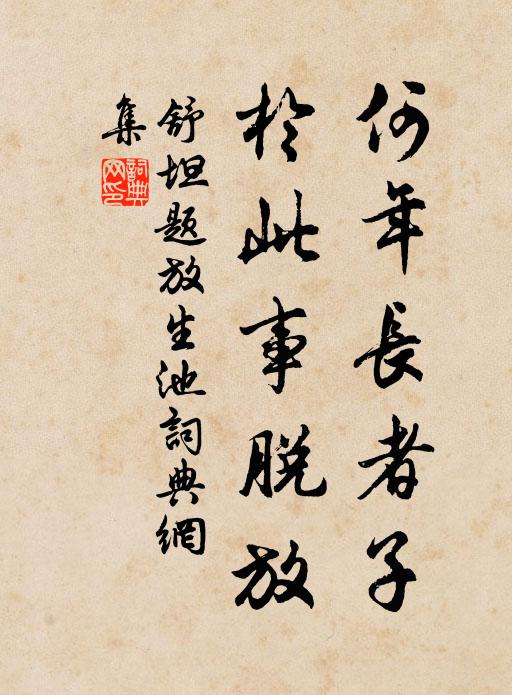 何年長者子
於此事脱放
舒坦題放生池詞典網
集
詞典
网印